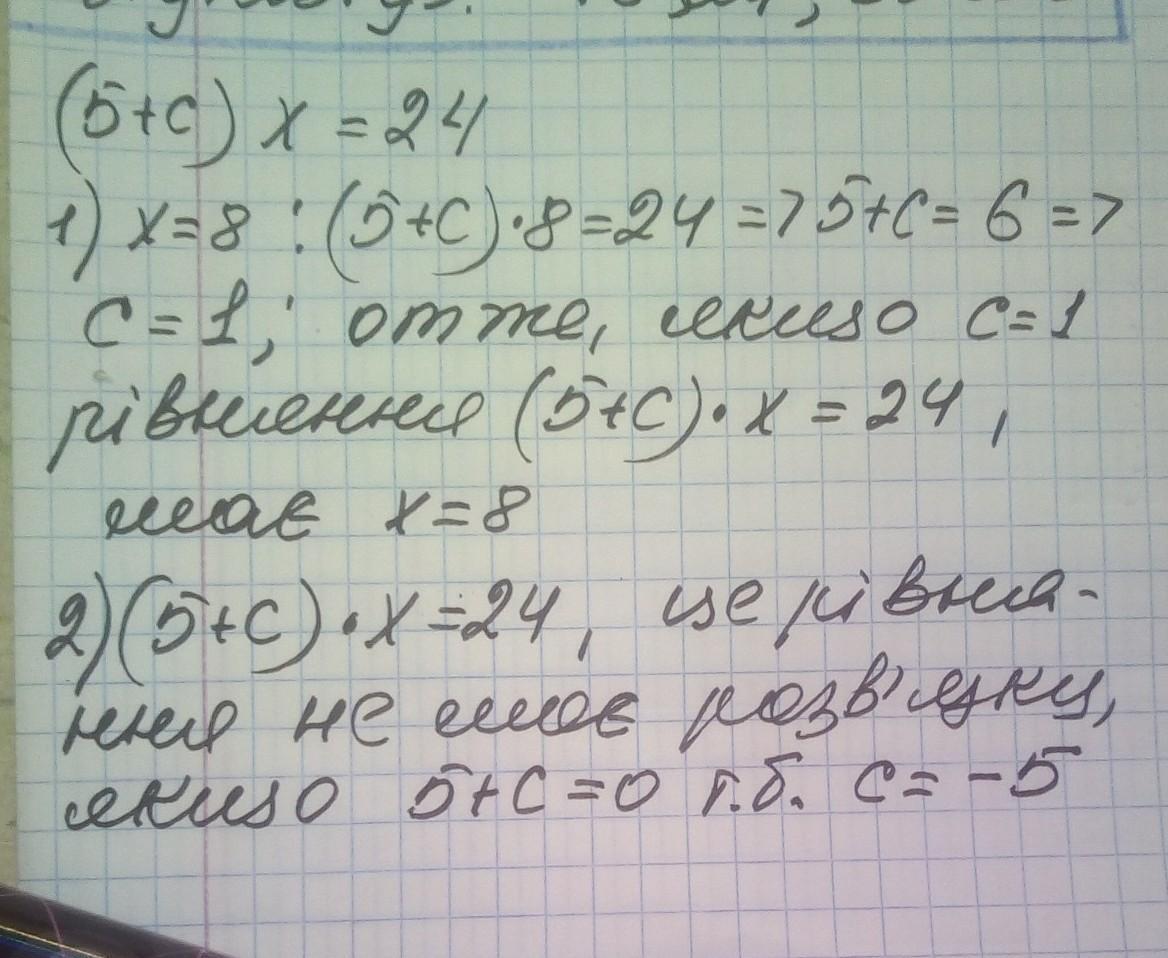 (5+c) x = 24
1) x=8 : (5+c)·8=24 => 5+c= 6 =>
c = 1; отже, якщо c=1
рівняння (5+c)·x = 24,
має x=8
2) (5+c)·x=24, це рівня-
ння не має розв'язку,
якщо 5+c=0 т.б. c= -5